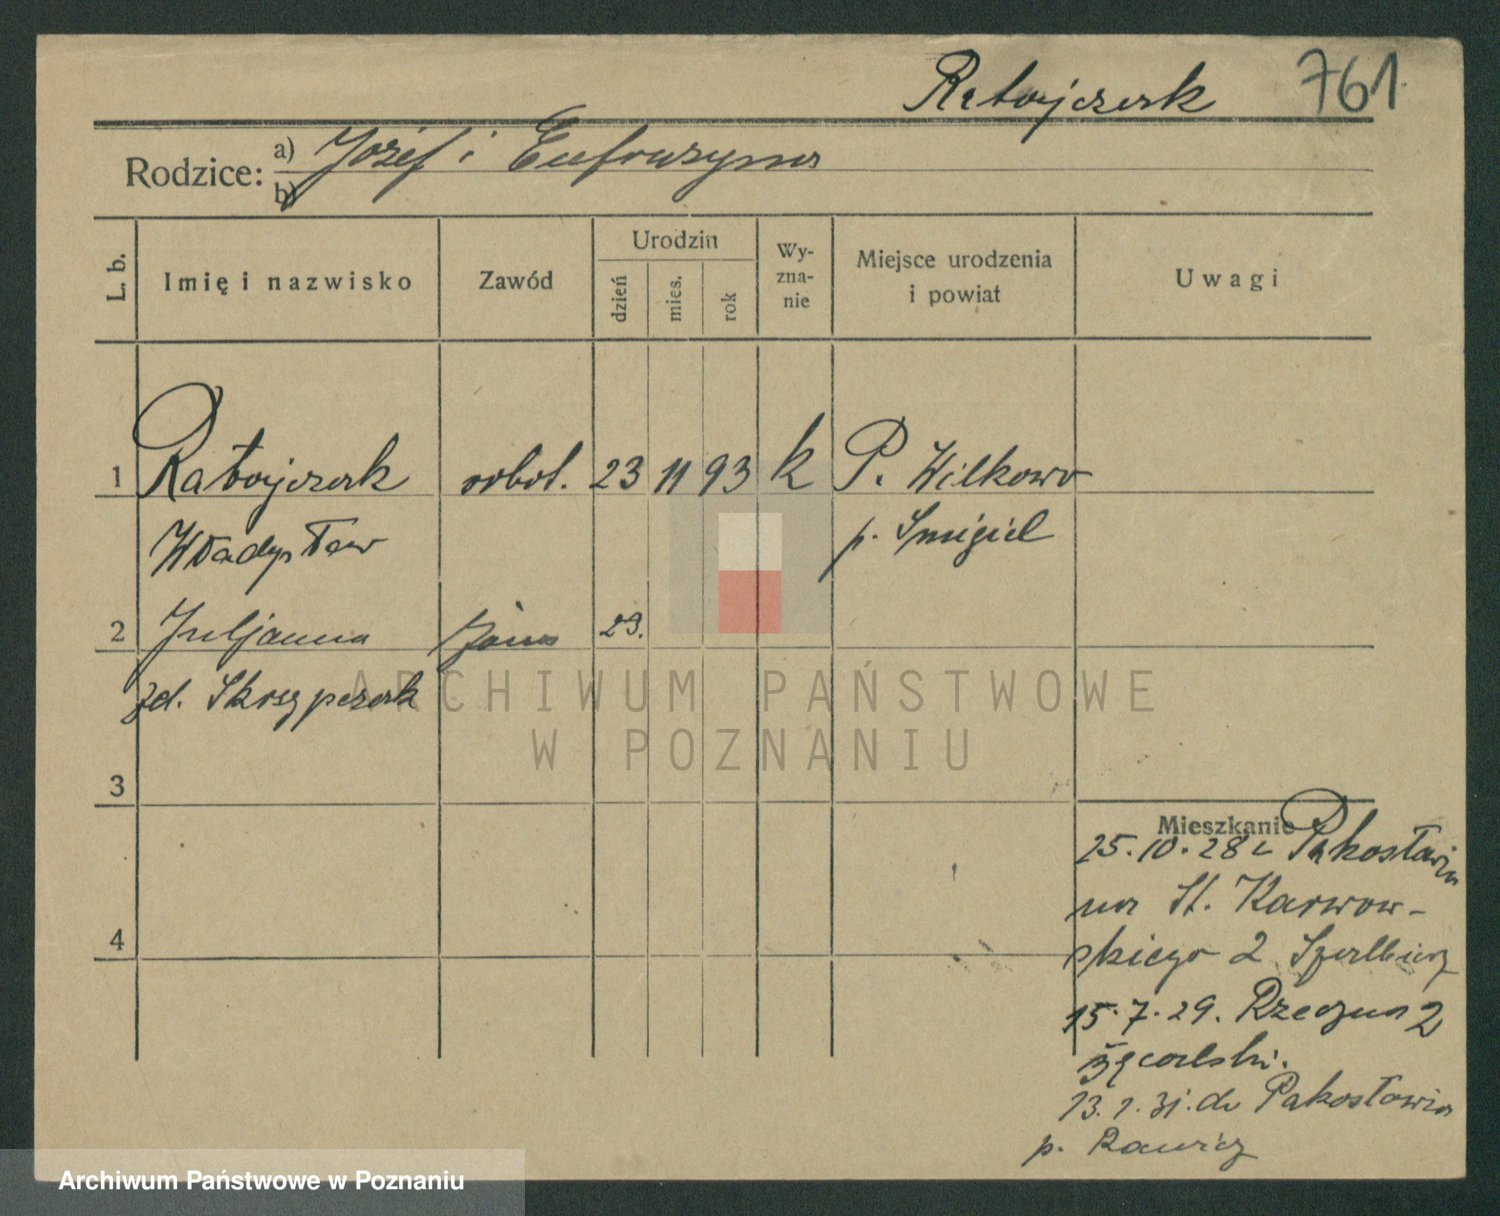 Ratajczak 761
Rodzice: a) Józef i Eufrozyna
b)
L. b. Imię i nazwisko Zawód Urodzin dzień mies. rok Wy-zna-nie Miejsce urodzenia i powiat Uwagi
1 Ratajczak robot. 23 11 93 k P. Wilkowo
Władysław p. Śmigiel
2 Juljanna żona 29.
zd. Skrzypczak
ARCHIWUM PAŃSTWOWE
W POZNANIU
3
Mieszkanie
25.10.28 z Pakosławia
na St. Karwow-
4
skiego 2
15.7.29. Rzeczna 2
13.1.31. do Pakosławia
p. Rawicz
Archiwum Państwowe w Poznaniu